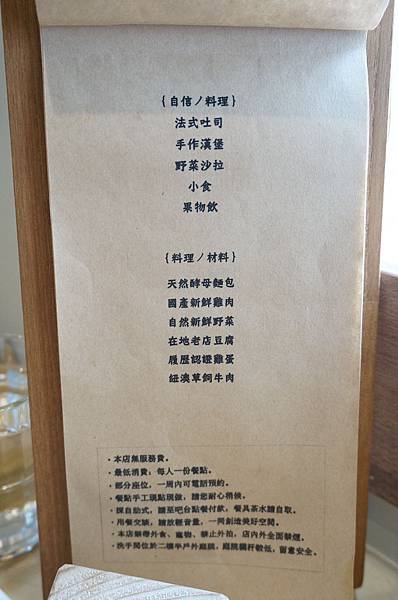 {自信ノ料理}
法式吐司
手作漢堡
野菜沙拉
小食
果物飲
{料理ノ材料}
天然酵母麵包
國產新鮮雞肉
自然新鮮野菜
在地老店豆腐
履歷認證雞蛋
紐澳草飼牛肉
·本店無服務費。
·最低消費:每人一份餐點。
·部分座位,一周內可電話預約。
·餐點手工現點現做,請您耐心稍候。
·採自助式,請至吧台點餐付款,餐具茶水請自取。
·用餐交談,請放輕音量,一同創造美好空間。
·本店禁帶外食、寵物,禁止外拍,店內外全面禁煙。
·洗手間位於二樓半戶外庭院,庭院欄杆較低,留意安全。